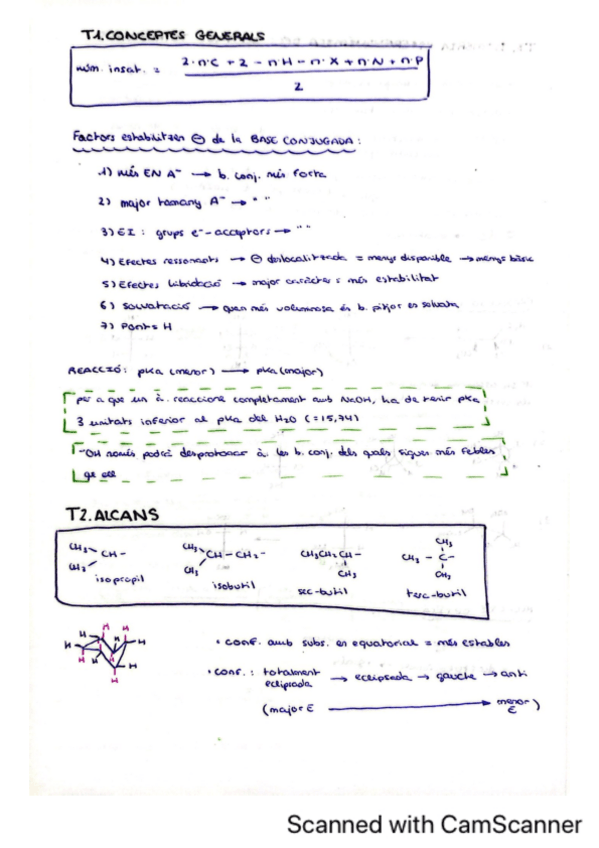 T.1. CONCEPTES GENERALS
núm. insat. = 2·nºC + 2 - nºH - nº X + nº N + nº P
2
Factors estabilitzen ⊖ de la BASE CONJUGADA:
1) més EN A⁻ → b. conj. més forta
2) major tamany A⁻ → " "
3) EI: grups e⁻-acceptors → " "
4) Efectes ressonants → ⊖ deslocalitzada = menys disponible → menys bàsic
5) Efectes hibridació → major caràcter s més estabilitat
6) Solvatació → quan més voluminosa és b. pitjor es solvata
7) Ponts H
REACCIÓ: pka (menor) → pka (major)
per a que un à. reaccione completament amb NaOH, ha de tenir pka
3 unitats inferior al pka del H₂O (=15,74)
⁻OH només podrà desprotonar à. les b. conj. dels quals sigues més febles
que ell
T2. ALCANS
CH₃ CH- CH₃ CH-CH₂- CH₃CH₂CH- CH₃
CH₃ CH₃ CH₃ CH₃-C-
CH₃
isopropil isobutil sec-butil terc-butil
H H H H H H H H H H H H
• conf. amb subs. en equatorial = més estables
• conf.: totalment eclipsada → eclipsada → gauche → anti
(major E → menor E)
Scanned with CamScanner